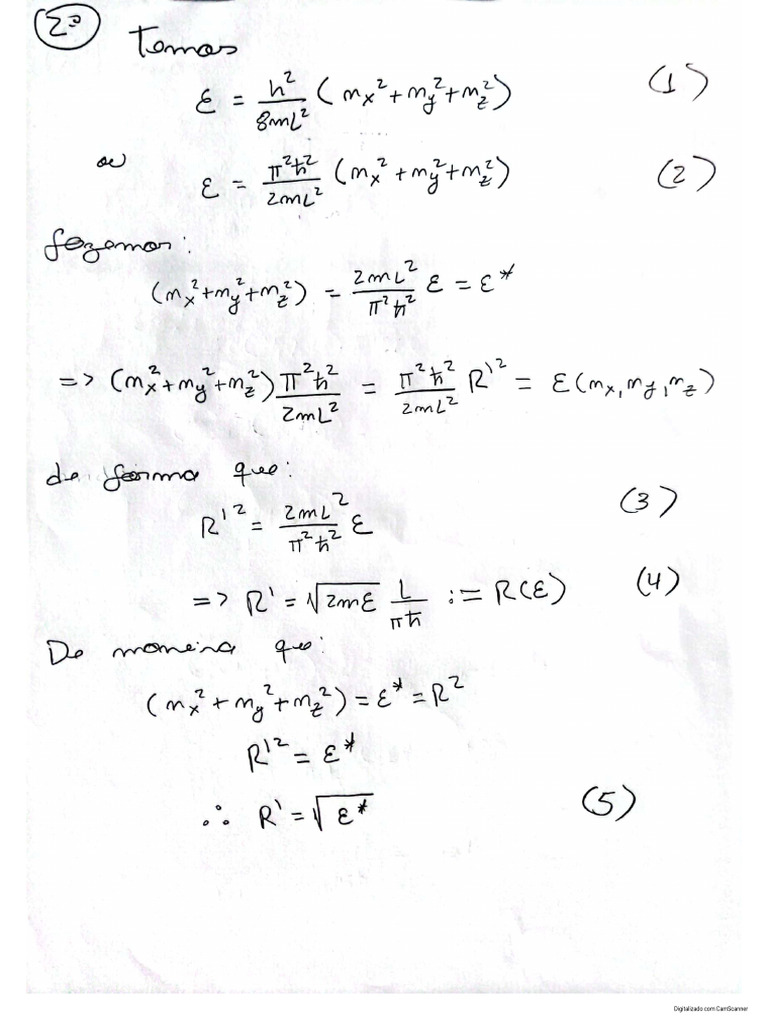 2º Temos
ε = h²/8mL² (nx² + ny² + nz²) (1)
ou ε = π²ħ²/2mL² (nx² + ny² + nz²) (2)
fazemos:
(nx² + ny² + nz²) = 2mL²/π²ħ² ε = ε*
=> (nx² + ny² + nz²) π²ħ²/2mL² = π²ħ²/2mL² R'² = ε(nx, ny, nz)
de forma que:
R'² = 2mL²/π²ħ² ε (3)
=> R' = √2mε L/πħ := R(ε) (4)
De maneira que:
(nx² + ny² + nz²) = ε* = R²
R'² = ε*
∴ R' = √ε* (5)
Digitalizado com CamScanner